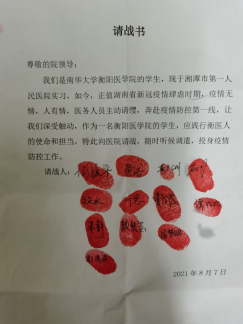 请战书
尊敬的院领导：
我们是南华大学衡阳医学院的学生，现于湘潭市第一人
民医院实习。如今，正值湖南省新冠疫情肆虐时期，疫情无
情，人有情，医务人员主动请缨，奔赴疫情防控第一线，让
我们深受触动，作为一名衡阳医学院的学生，应践行衡医人
的使命和担当，特此向医院请战，随时听候调遣，投身疫情
防控工作。
请战人：
2021年8月7日